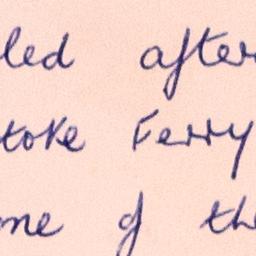 led after
toke Ferry
me of the